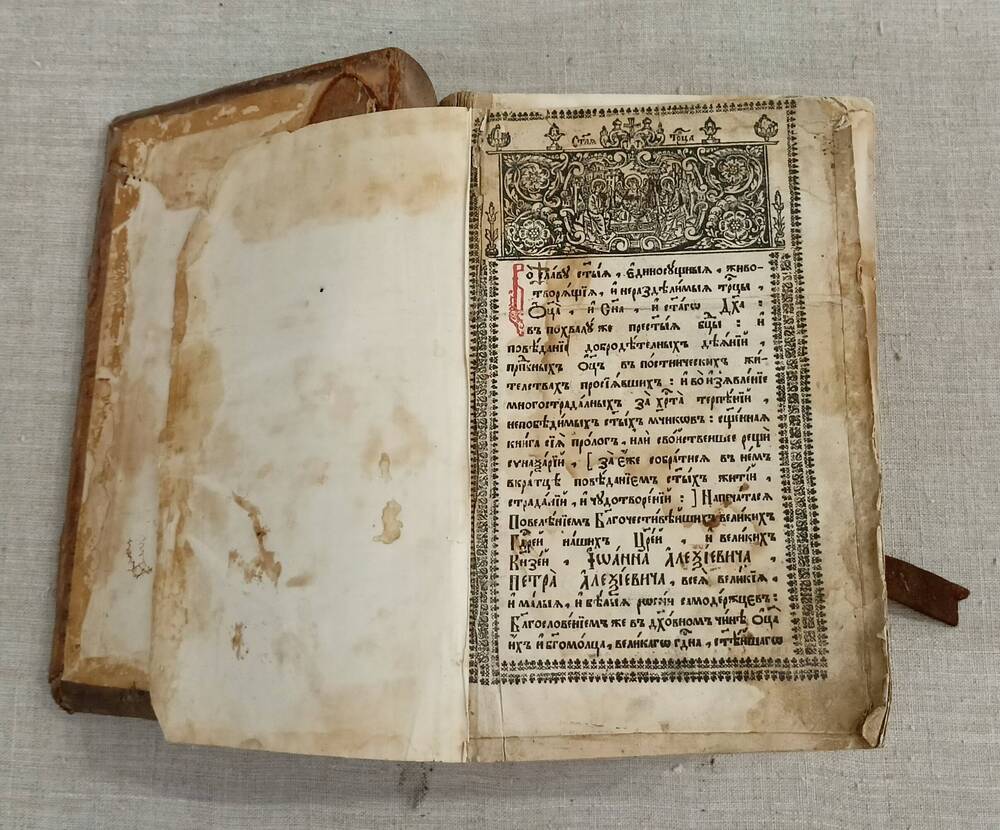 Ст҃аѧ Трⷪ҇ца
Во славу ст҃ыѧ, є҆диносущныѧ, живо-
творѧщїѧ, и҆ нераздѣлимыѧ трⷪ҇цы,
Ѻ҆ц҃а, и҆ Сн҃а, и҆ ст҃агѡ Дх҃а :
въ похвалу же прест҃ыѧ бц҃ы : и҆
повѣданїе добродѣтелныхъ дѣѧнїй,
прпⷣбныхъ Ѻ҆ц҃ъ въ постническихъ жи-
телствахъ просїѧвшихъ : и҆ во и҆з̾ѧвленїе
многострадалныхъ за хрⷭ҇та терпѣнїй,
непобѣдимыхъ ст҃ыхъ мч҃никѡвъ : сщ҃еннаѧ
книга сїѧ прологъ, или свойственнѣе рещи
сѵнаѯарїй, [ за є҆же собратисѧ въ нѣмъ
вкратцѣ повѣданїемъ ст҃ыхъ житїй,
страданїй, и҆ чудотворенїй : ] Напечатасѧ
Повелѣнїемъ Блг҃очестивѣйшихъ великихъ
Гдⷭ҇рей нашихъ Царей, и҆ великихъ
Кнѧзей, І҆ѡанна Алеѯїевича,
Петра Алеѯїевича, всеѧ великїѧ,
и҆ малыѧ, и҆ бѣлыѧ рѡссїи самодержцевъ :
Блг҃ословенїемъ же въ дх҃овномъ чинѣ Ѻ҆ц҃а
и҆хъ и҆ бг҃омолца, великагѡ гдⷭ҇на, ст҃ѣйшагѡ